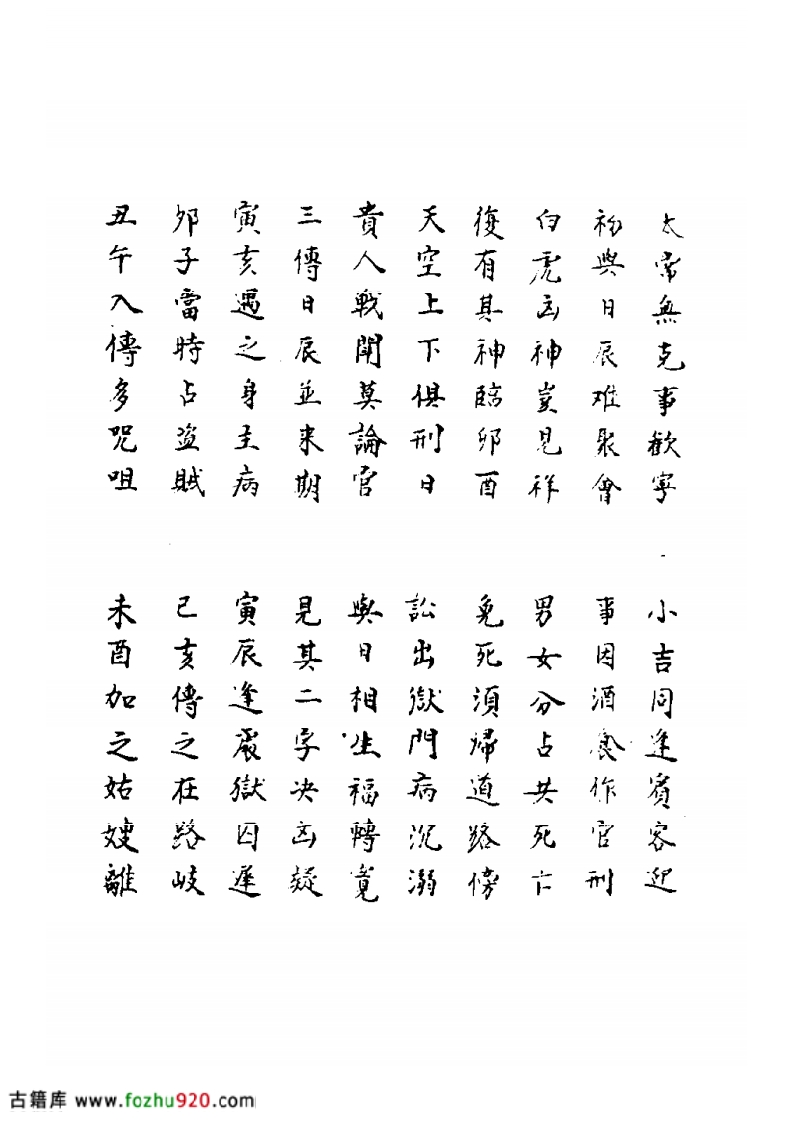 太常無克事歡寧　小吉同逢賓客迎
初與日辰难聚會　事因酒食作官刑
白虎凶神豈見祥　男女分占共死亡
復有其神臨卯酉　免死須歸道路傍
天空上下俱刑日　訟出獄門病沉溺
貴人戰鬪莫論官　與日相生福轉寬
三傳日辰並来期　見其二字决凶疑
寅亥遇之身主病　寅辰逢處獄囚遲
卯子當時占盗賊　巳亥傳之在路岐
丑午入傳多咒咀　未酉加之姑嫂離
古籍库 www.fozhu920.com